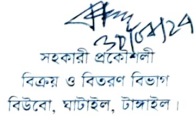 30/04/24
সহকারী প্রকৌশলী
বিক্রয় ও বিতরণ বিভাগ
বিউবো, ঘাটাইল, টাঙ্গাইল।